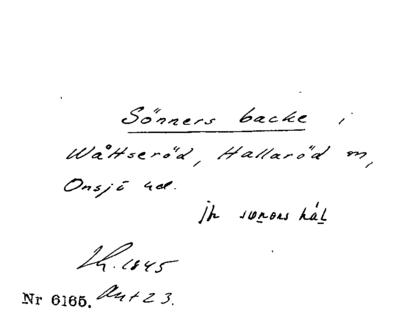 Sönners backe i
Wåttseröd, Hallaröd m,
Onsjö hd.
jh sonons hål
Lh. 1845
Nr 6165. Ant 23.